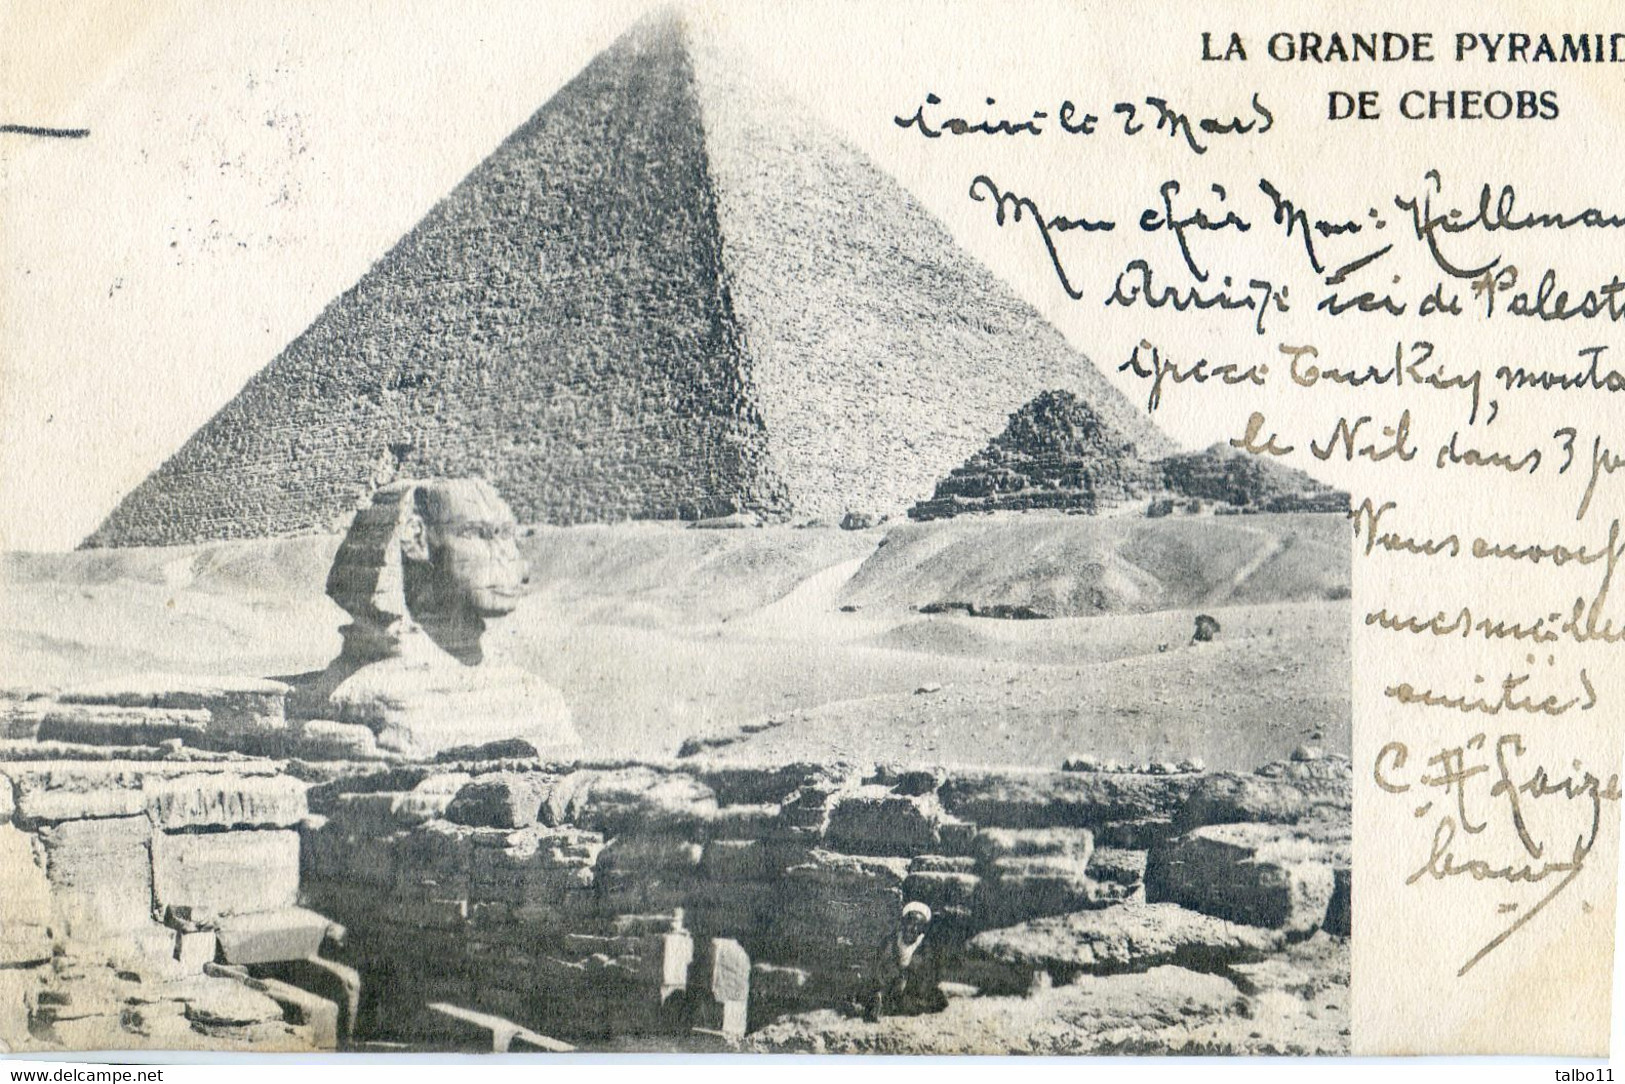 LA GRANDE PYRAMID
DE CHEOBS
Caire le 2 Mars
Mon cher Mon: Hellman
Arrivé ici de Palest
Grece Turkey, monta
le Nil dans 3 jo
Vous envoyé
mes meilleu
amitiés
C. A. Loize
baux
www.delcampe.net
talbo11